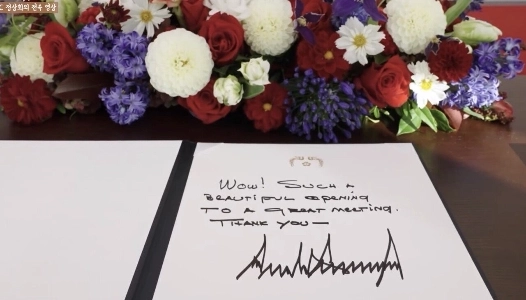 정상회의 전속 영상
Wow! SUCH A
BEAUTIFUL OPENING
TO A GREAT MEETING.
THANK YOU —